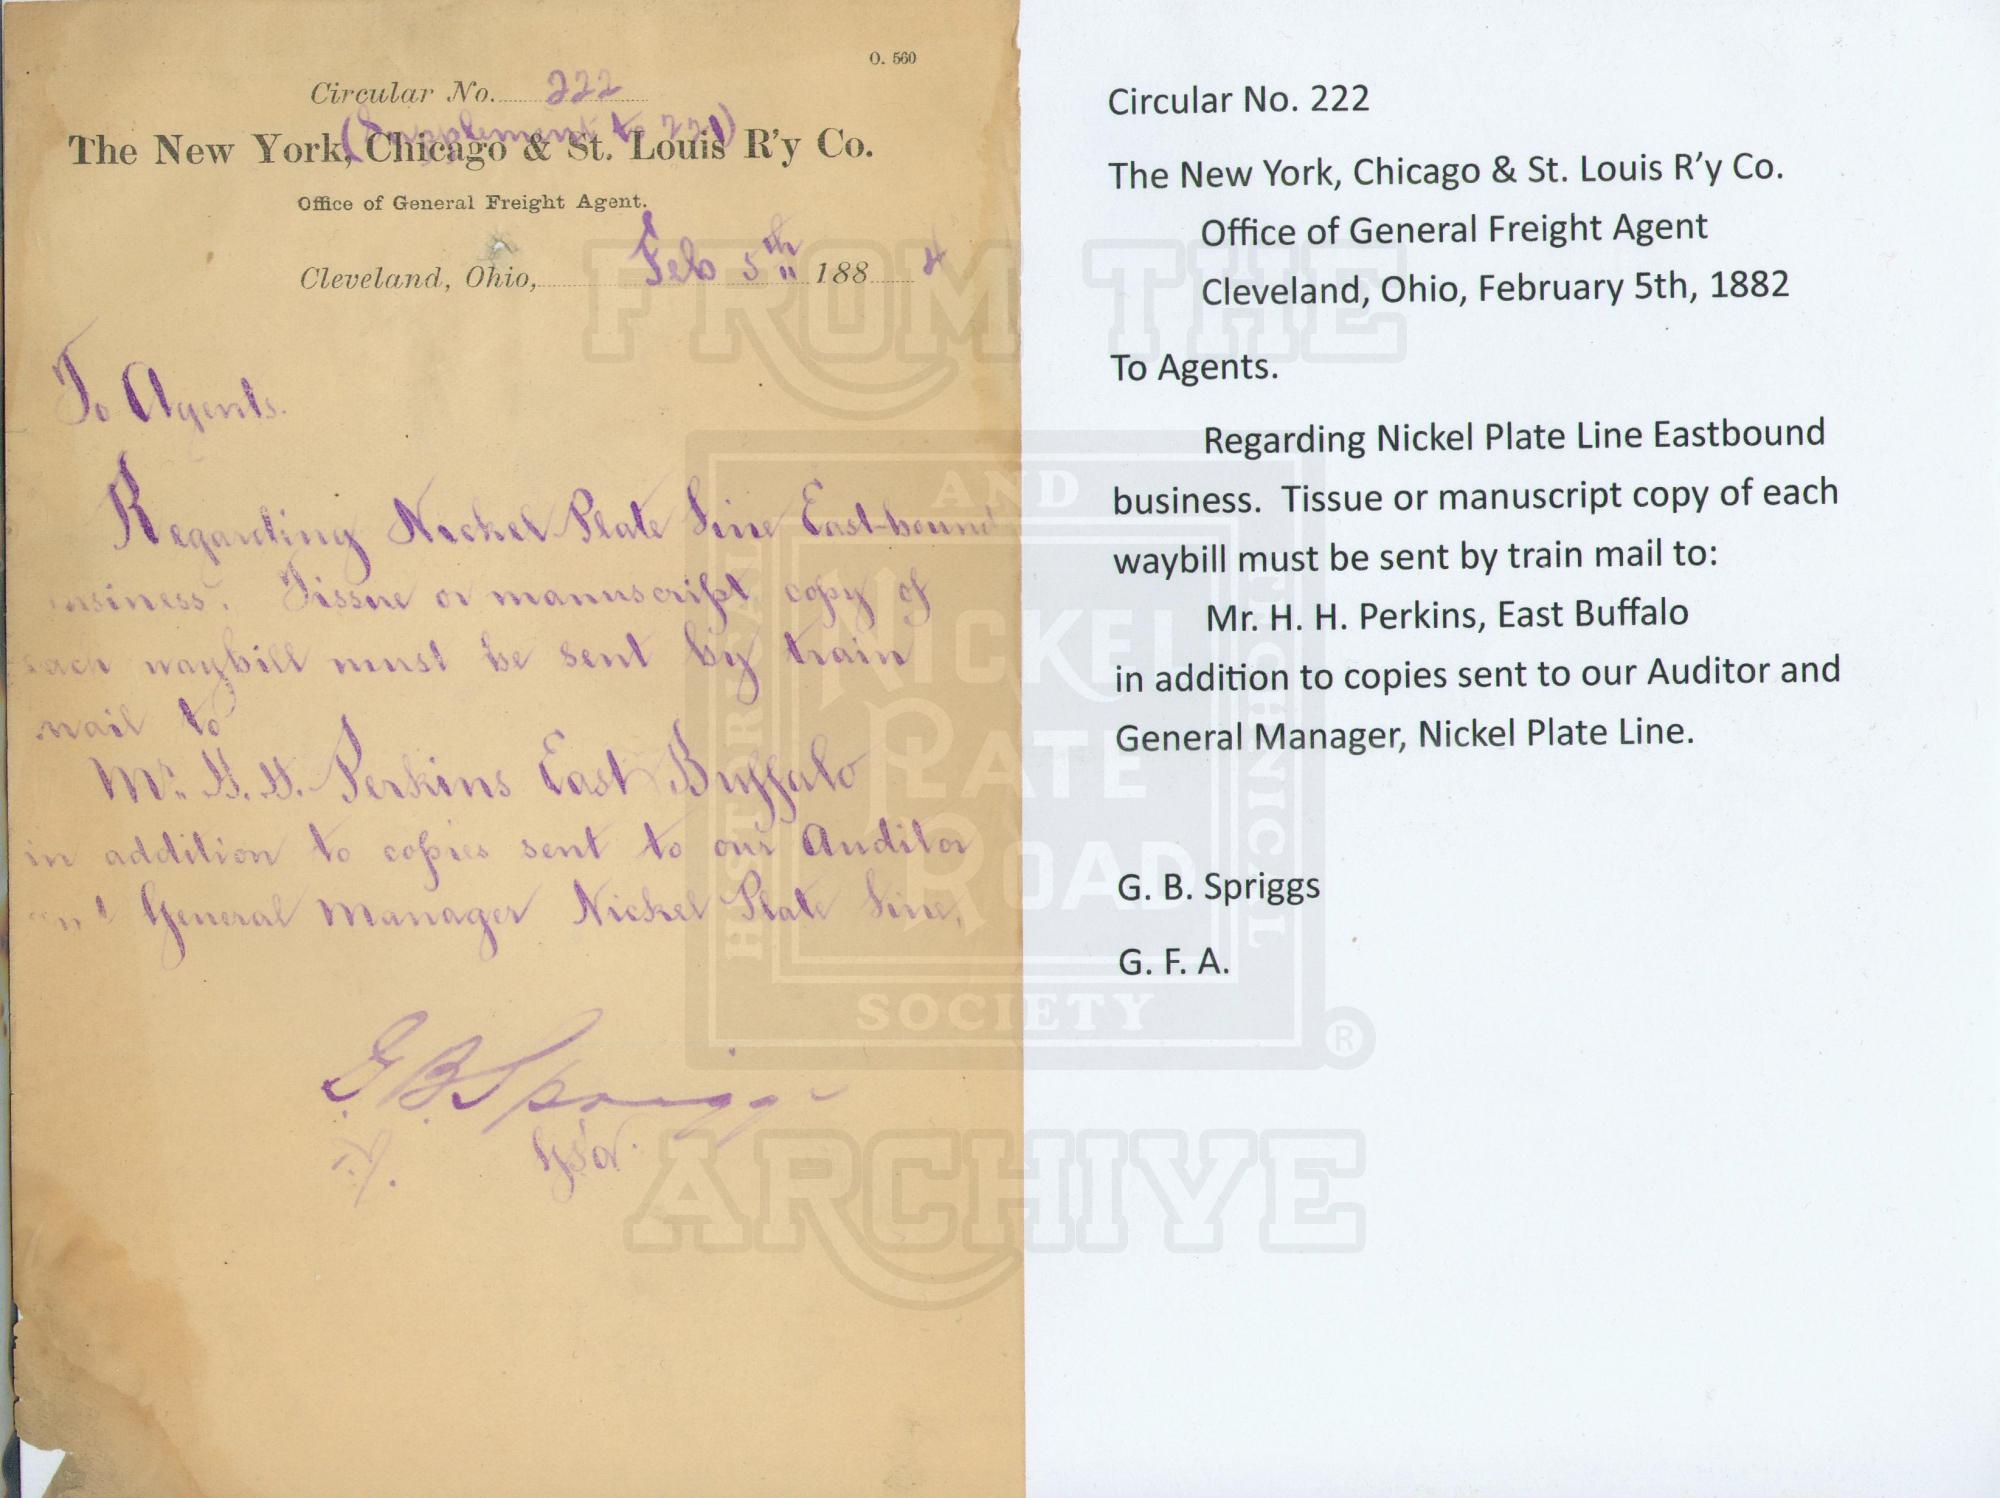 O. 560
Circular No. 222
(Supplement to 221)
The New York, Chicago & St. Louis R'y Co.
Office of General Freight Agent.
Cleveland, Ohio, Feb 5th 188
To Agents.
Regarding Nickel Plate Line East-bound
business. Tissue or manuscript copy of
each waybill must be sent by train
mail to
Mr. H. H. Perkins East Buffalo
in addition to copies sent to our Auditor
and General Manager Nickel Plate Line,
G B Spriggs
Circular No. 222
The New York, Chicago & St. Louis R’y Co.
Office of General Freight Agent
Cleveland, Ohio, February 5th, 1882
To Agents.
Regarding Nickel Plate Line Eastbound
business. Tissue or manuscript copy of each
waybill must be sent by train mail to:
Mr. H. H. Perkins, East Buffalo
in addition to copies sent to our Auditor and
General Manager, Nickel Plate Line.
G. B. Spriggs
G. F. A.
FROM THE
HISTORICAL AND TECHNICAL
NICKEL
PLATE
ROAD
SOCIETY
®
ARCHIVE